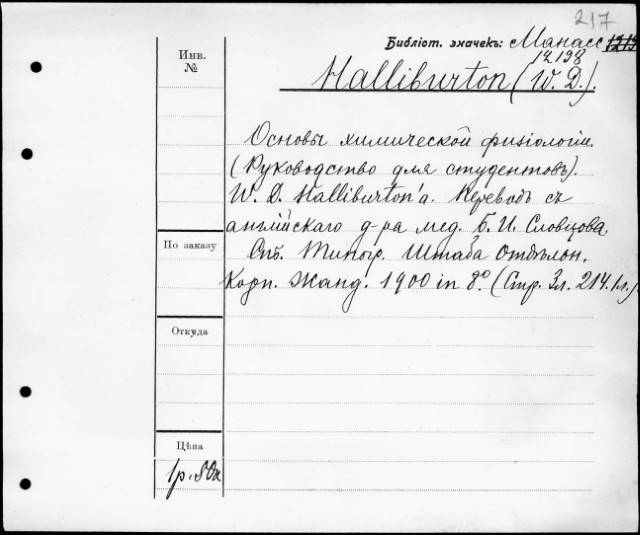 217
Библіот. значекъ: Манасс 1219
12198
Инв.
№
Halliburton (W. D.).
Основы химической физіологіи.
(Руководство для студентовъ).
W. D. Halliburton'а. Переводъ съ
англійскаго д-ра мед. Б. И. Словцова.
По заказу
Спб. Типогр. Штаба Отдѣльн.
Корп. Жанд. 1900 in 8º. (Стр. 3л. 214. 1л.)
Откуда
Цѣна
1р. 80к